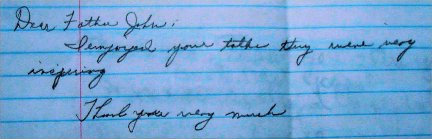 Dear Father John:
I enjoyed your talks they were very
inspiring
Thank you very much